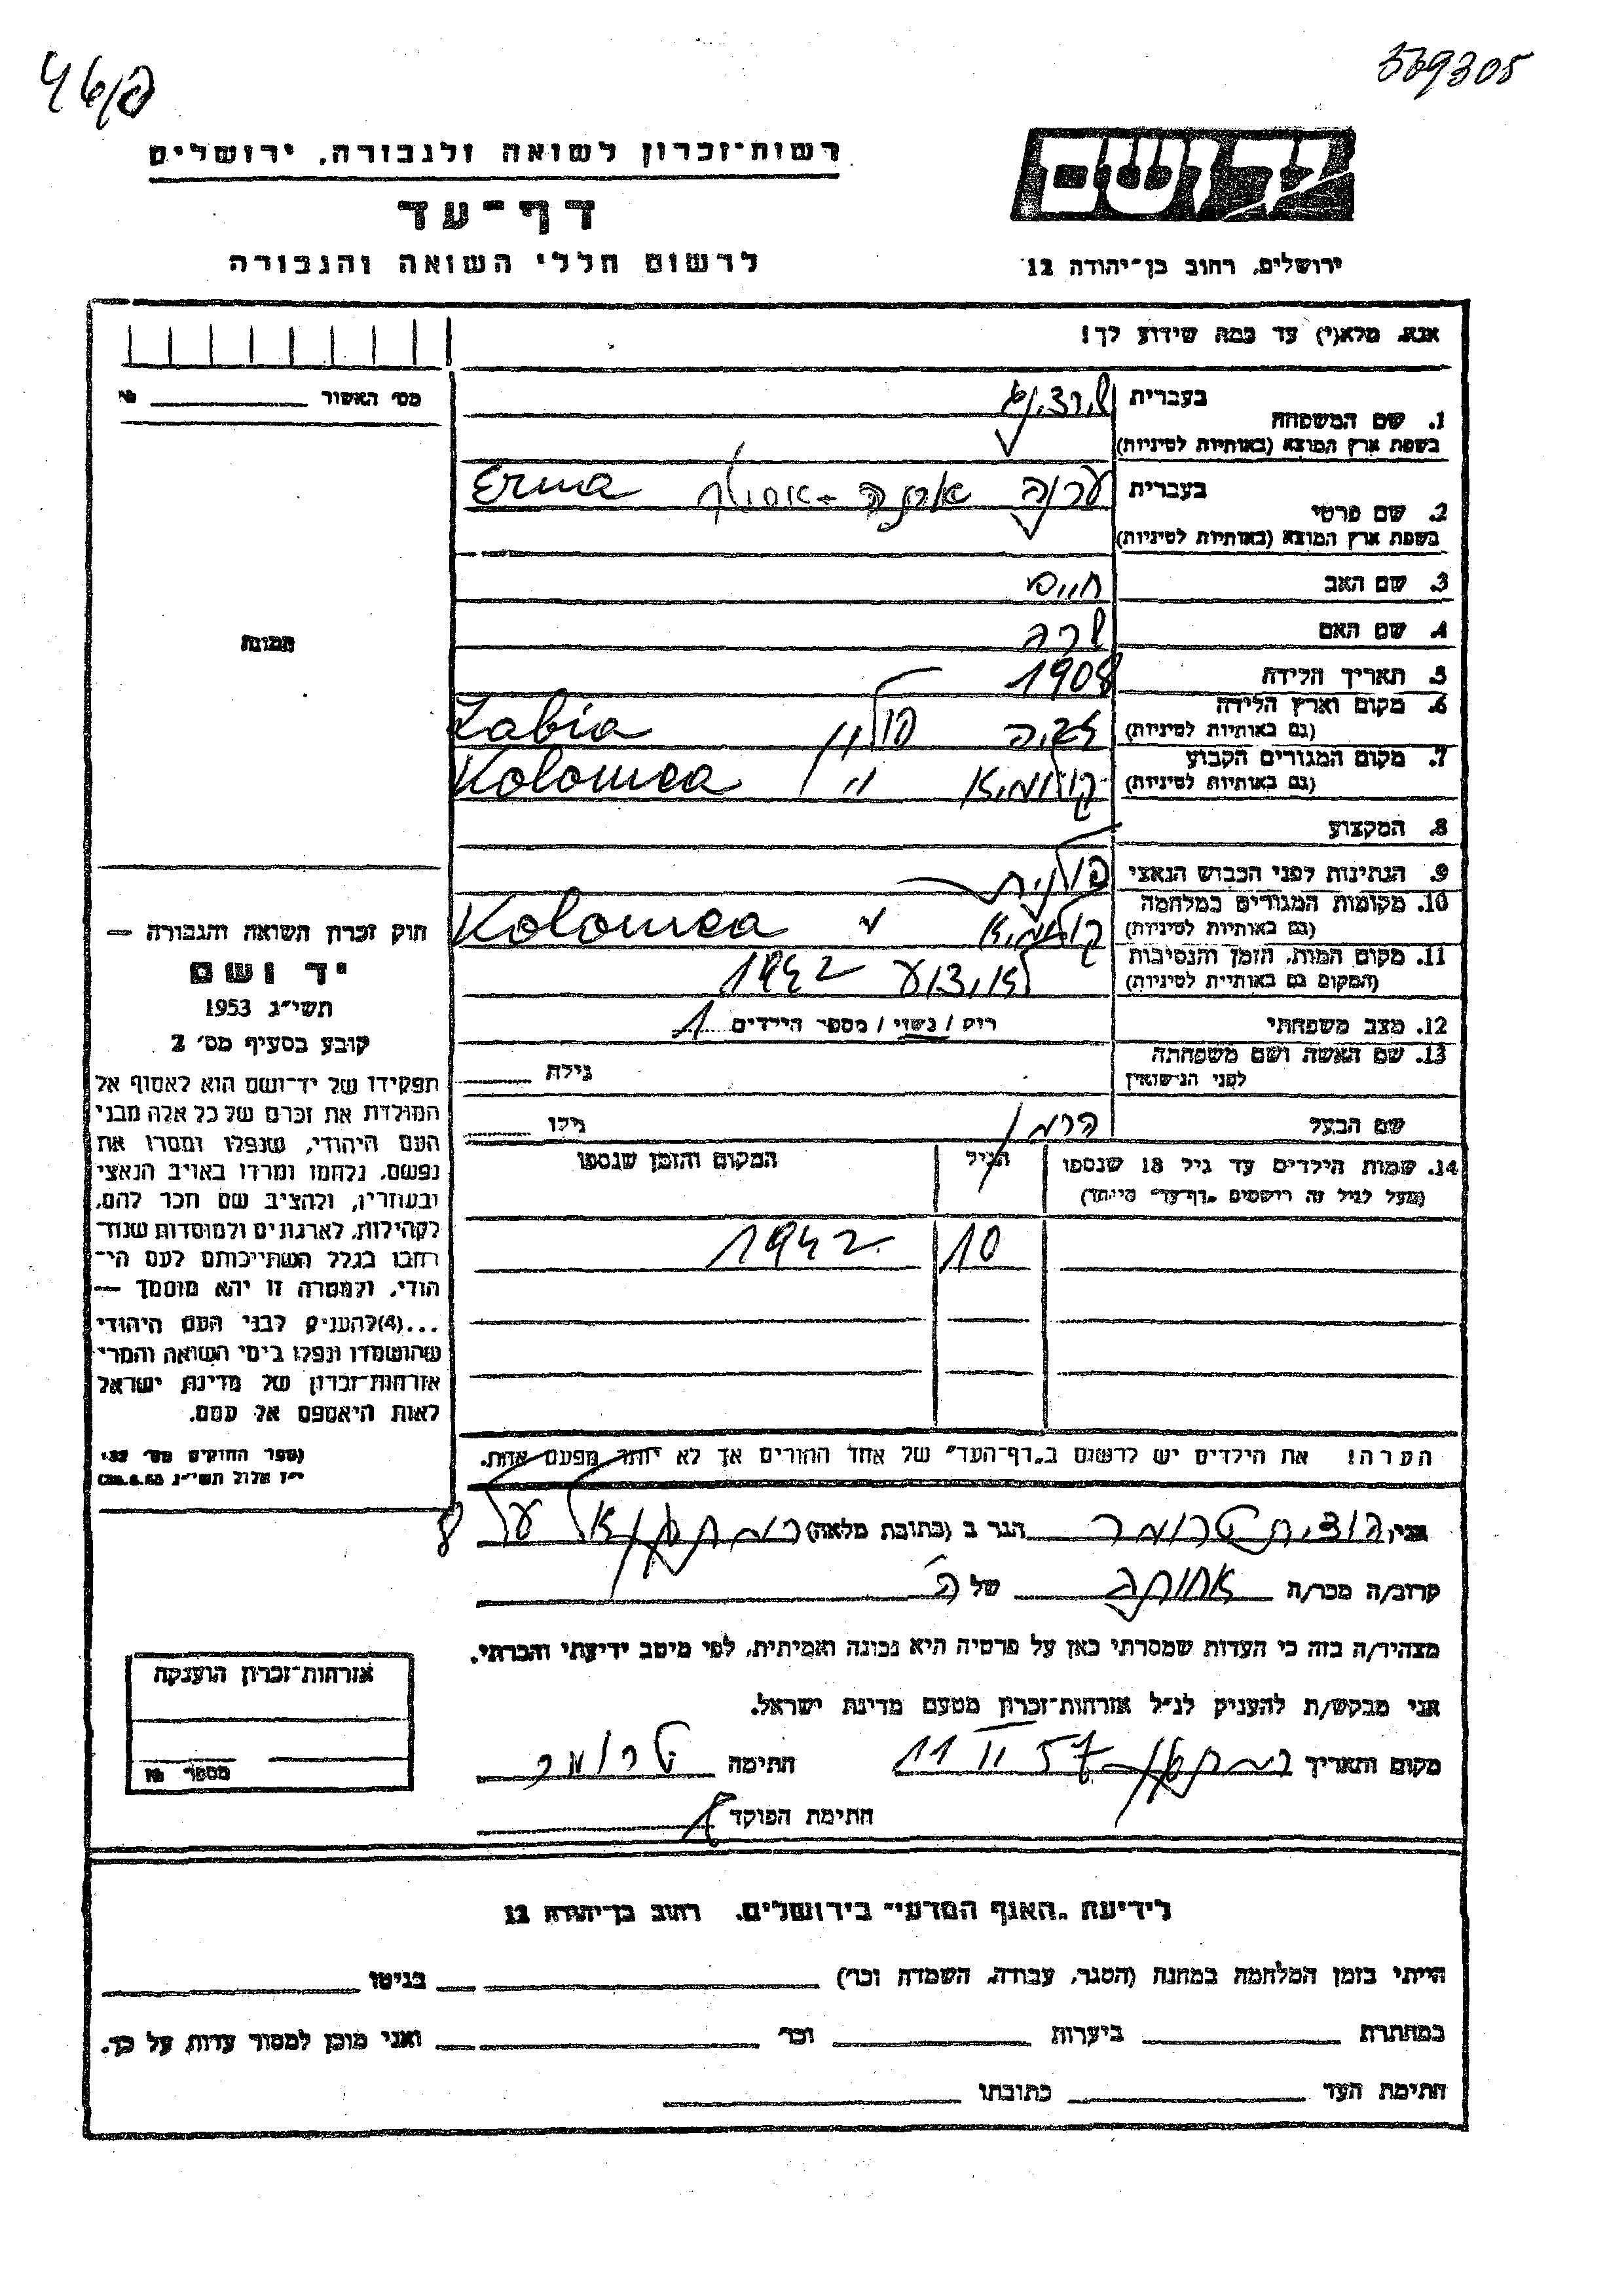 46/פ
569305
רשות־זכרון לשואה ולגבורה, ירושלים
יד ושם
דף־עד
לרשום חללי השואה והגבורה
ירושלים, רחוב בן־יהודה 12
אנא, מלא(י) עד כמה שידוע לך!
מס׳ האשור №
1. שם המשפחה בעברית
בשפת ארץ המוצא (באותיות לטיניות)
2. שם פרטי בעברית ערנה Erna
בשפת ארץ המוצא (באותיות לטיניות)
3. שם האב חיים
4. שם האם שרה
5. תאריך הלידה 1908
6. מקום וארץ הלידה פולין Zabia
(גם באותיות לטיניות)
7. מקום המגורים הקבוע קולומיא " Kolomea
(גם באותיות לטיניות)
8. המקצוע
9. הנתינות לפני הכבוש הנאצי פולנית
10. מקומות המגורים במלחמה קולומיא " Kolomea
(גם באותיות לטיניות)
11. מקום המות, הזמן והנסיבות לא ידוע 1942
(המקום גם באותיות לטיניות)
12. מצב משפחתי רוק / נשוי / מספר הילדים 1
13. שם האשה ושם משפחתה גילה
לפני הנישואין
שם הבעל הרמן גילו
14. שמות הילדים עד גיל 18 שנספו הגיל המקום והזמן שנספו
(מעל לגיל זה רושמים „דף־עד״ מיוחד)
10 1942
הערה! את הילדים יש לרשום ב„דף־העד״ של אחד ההורים אך לא יותר מפעם אחת.
תמונה
חוק זכרון השואה והגבורה —
יד ושם
תשי״ג 1953
קובע בסעיף מס׳ 2
תפקידו של יד־ושם הוא לאסוף אל
המולדת את זכרם של כל אלה מבני
העם היהודי, שנפלו ומסרו את
נפשם, נלחמו ומרדו באויב הנאצי
ובעוזריו, ולהציב שם וזכר להם,
לקהילות, לארגונים ולמוסדות שנחרבו
בגלל השתייכותם לעם היהודי,
ולמטרה זו יהא מוסמך —
...(4)להעניק לבני העם היהודי
שהושמדו ונפלו בימי השואה והמרי
אזרחות־זכרון של מדינת ישראל
לאות היאספם אל עמם.
(ספר החוקים מס׳ 132
י״ז אלול תשי״ג 28.8.53)
אני, טרומר הגר ב (כתובת מלאה) רמת גן 8
קרוב/ה מכר/ה אחותה של ה
מצהיר/ה בזה כי העדות שמסרתי כאן על פרטיה היא נכונה ואמיתית, לפי מיטב ידיעתי והכרתי.
אני מבקש/ת להעניק לנ״ל אזרחות־זכרון מטעם מדינת ישראל.
מקום ותאריך רמת גן 11 II 57 חתימה טרומר
חתימת הפוקד
אזרחות־זכרון הוענקה
מספר №
לידיעת „האגף המדעי״ בירושלים, רחוב בן־יהודה 12
הייתי בזמן המלחמה במחנה (הסגר, עבודה, השמדה וכו׳) בגיטו
במחתרת ביערות וכו׳ ואני מוכן למסור עדות על כך.
חתימת העד כתובתו